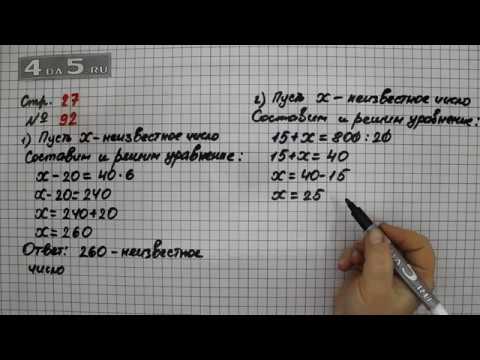 4 DA 5 . RU
Стр. 27
№ 92
1) Пусть x - неизвестное число
Составим и решим уравнение:
x - 20 = 40 · 6
x - 20 = 240
x = 240 + 20
x = 260
Ответ: 260 - неизвестное
число
2) Пусть x - неизвестное число
Составим и решим уравнение:
15 + x = 800 : 20
15 + x = 40
x = 40 - 15
x = 25
4 DA 5 . RU